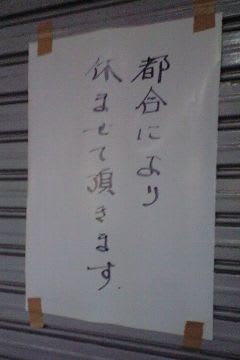 都合により
休ませて頂きます.